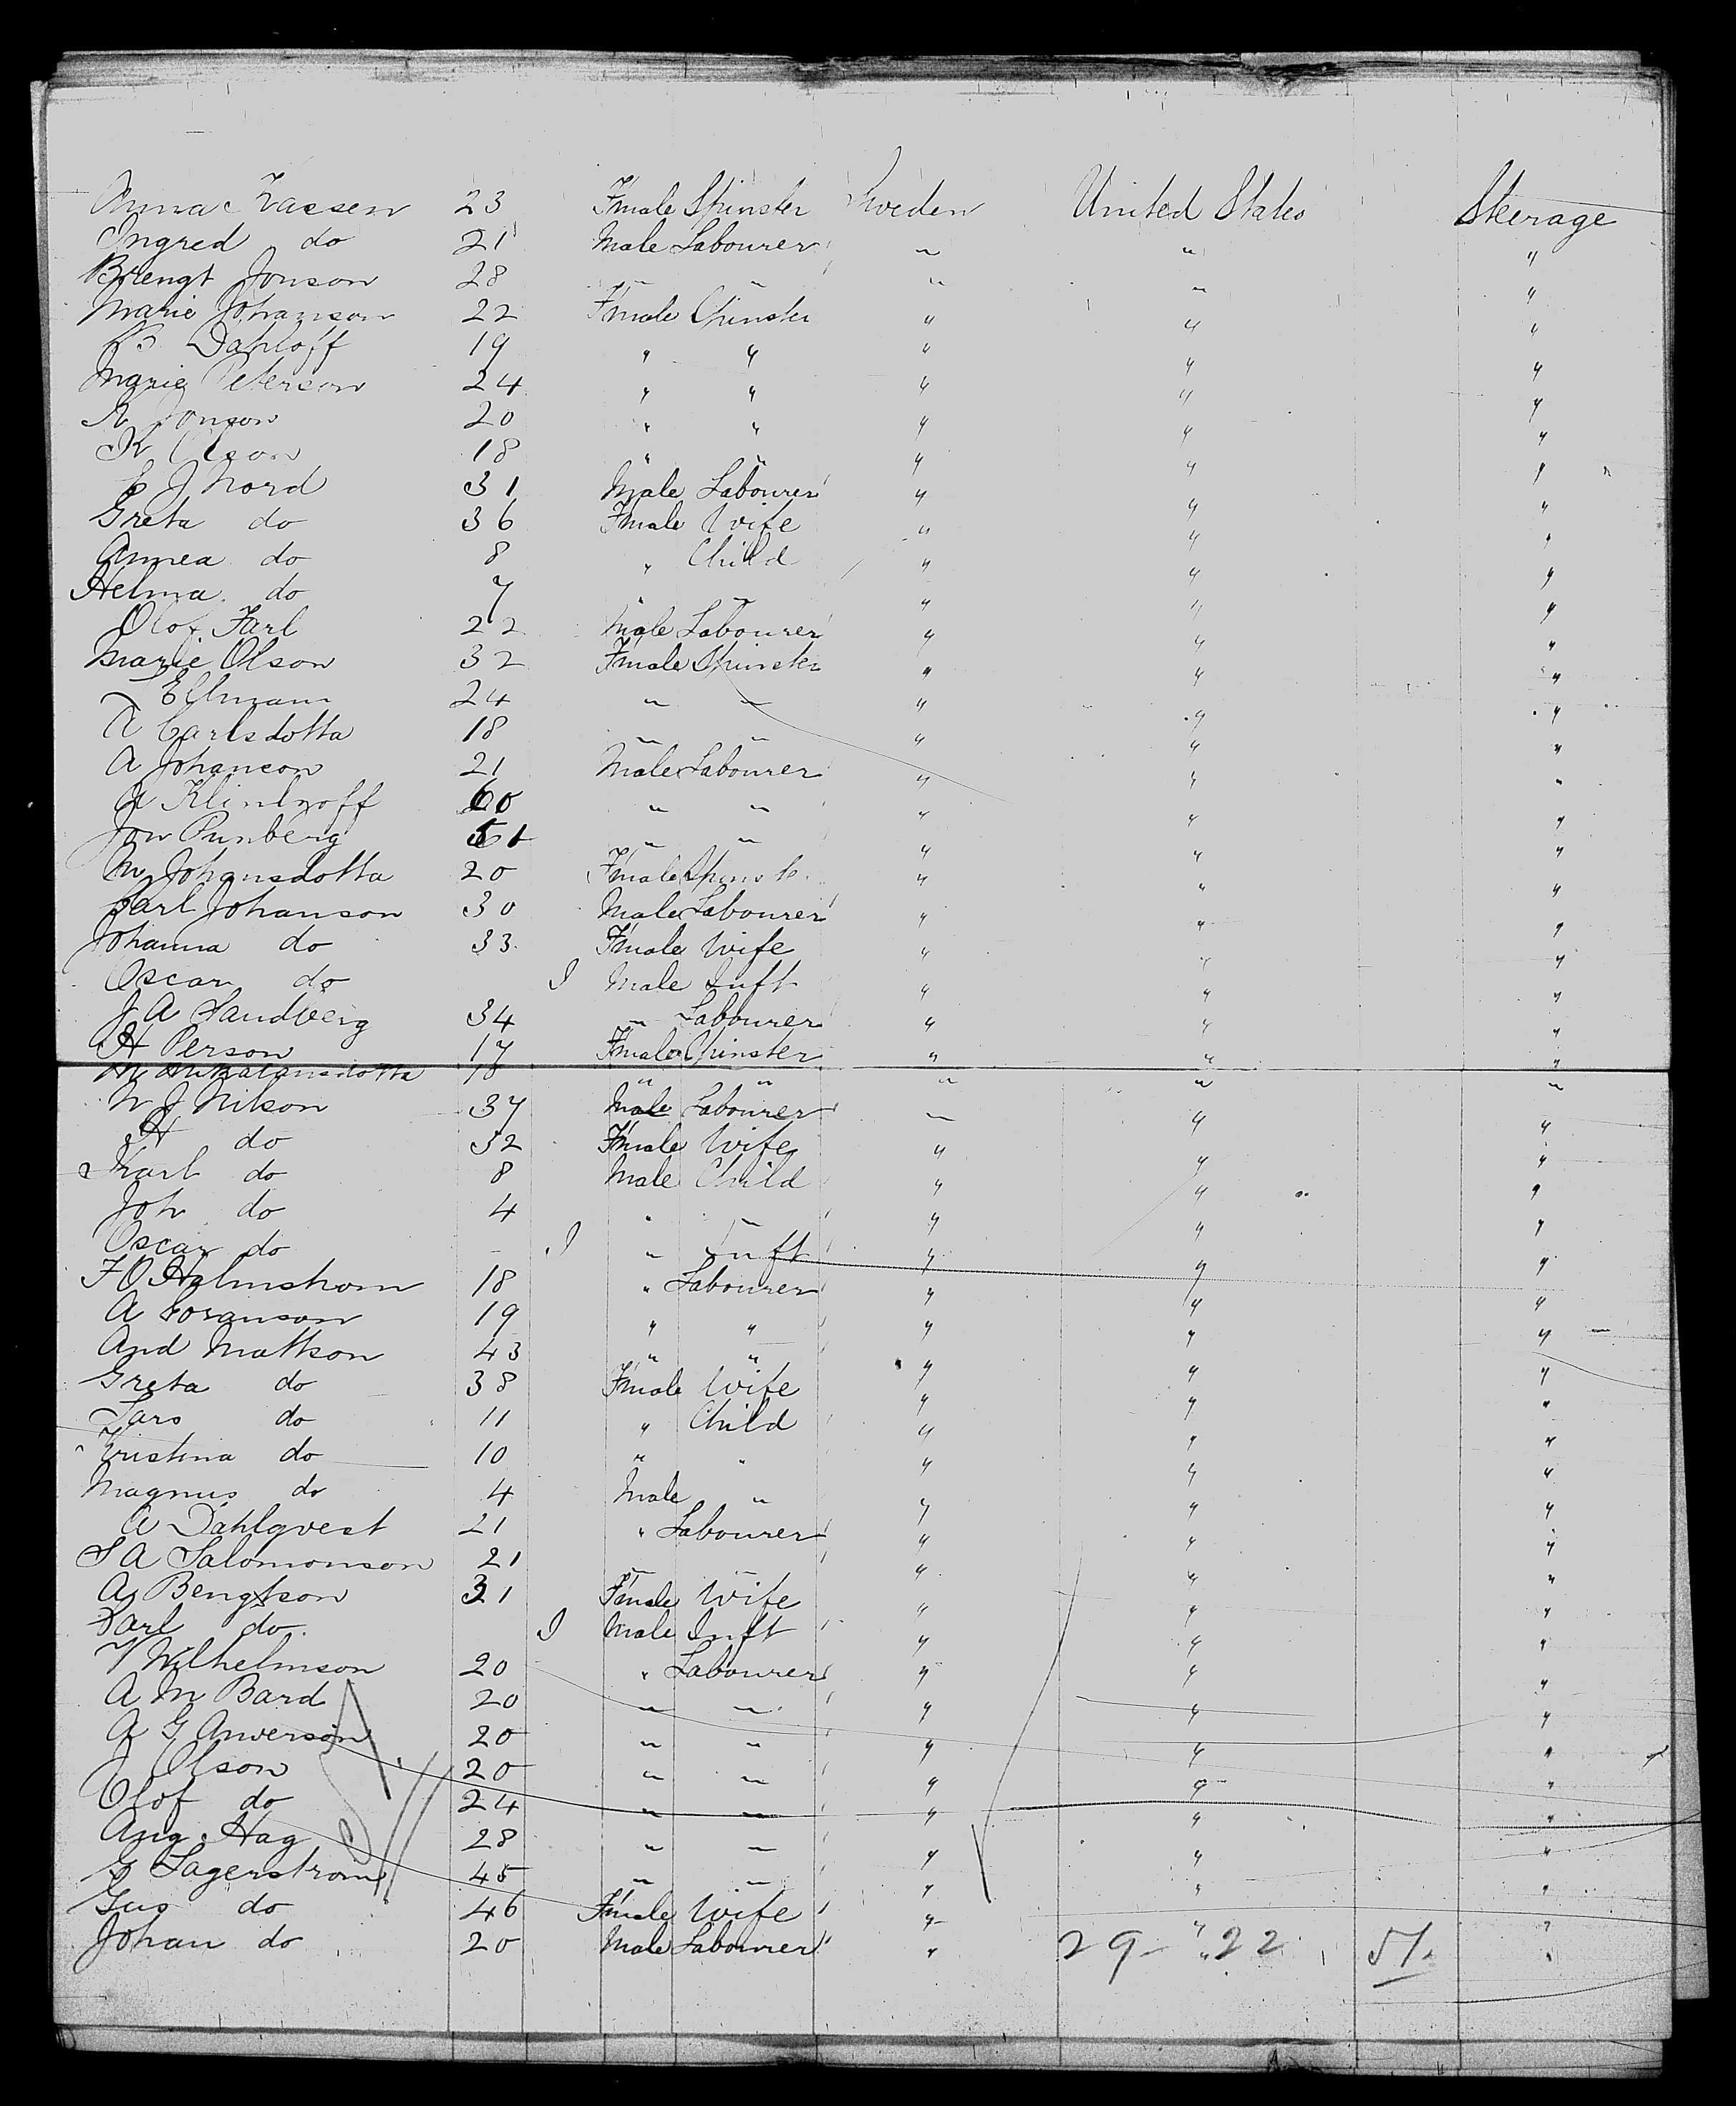 Anna Lassen 23 Fmale Spinster Sweden United States Steerage
Ingred do 21 Male Labourer " " "
Brengt Jonson 28 " " " " "
Marie Johanson 22 Fmale Spinster " " "
Dahloff 19 " " " " "
Marie Peterson 24 " " " " "
A Jonson 20 " " " " "
K Olson 18 " " " " "
E J Nord 31 Male Labourer " " "
Greta do 36 Fmale Wife " " "
Annea do 8 " Child " " "
Helma do 7 " " " " "
Olof Farl 22 Male Labourer " " "
Marie Olson 32 Fmale Spinster " " "
Ellmann 24 " " " " "
A Carlsdotta 18 " " " " "
A Johancon 21 Male Labourer " " "
A 60 " " " " "
Jon Runberg 51 " " " " "
M Johansdotta 20 Fmale Spinste " " "
Carl Johanson 30 Male Labourer " " "
Johanna do 33 Fmale Wife " " "
Oscar do I Male Inft " " "
J A Sandberg 34 " Labourer " " "
H Person 17 Fmale Spinster " " "
M 18 " " " " "
N J Nilson 37 Male Labourer " " "
H do 32 Fmale Wife " " "
Karl do 8 Male Child " " "
Joh do 4 " " " " "
Oscar do I " Inft " " "
F O Halmshom 18 " Labourer " " "
A Goranson 19 " " " " "
And Mattson 43 " " " " "
Greta do 38 Fmale Wife " " "
Lars do 11 " Child " " "
Kristina do 10 " " " " "
Magnus do 4 Male " " " "
A Dahlqvest 21 " Labourer " " "
S A Salomonson 21 " " " " "
A Bengtson 31 Fmale Wife " " "
Carl do I Male Inft " " "
Wilhelmson 20 " Labourer " " "
A M Bard 20 " " " " "
A G Anverson 20 " " " " "
J Olson 20 " " " " "
Olof do 24 " " " " "
Aug. Hag 28 " " " " "
G Lagerstrom 45 " " " " "
Gus do 46 Fmale Wife " " "
Johan do 20 Male Labourer " " "
29 - 22 51